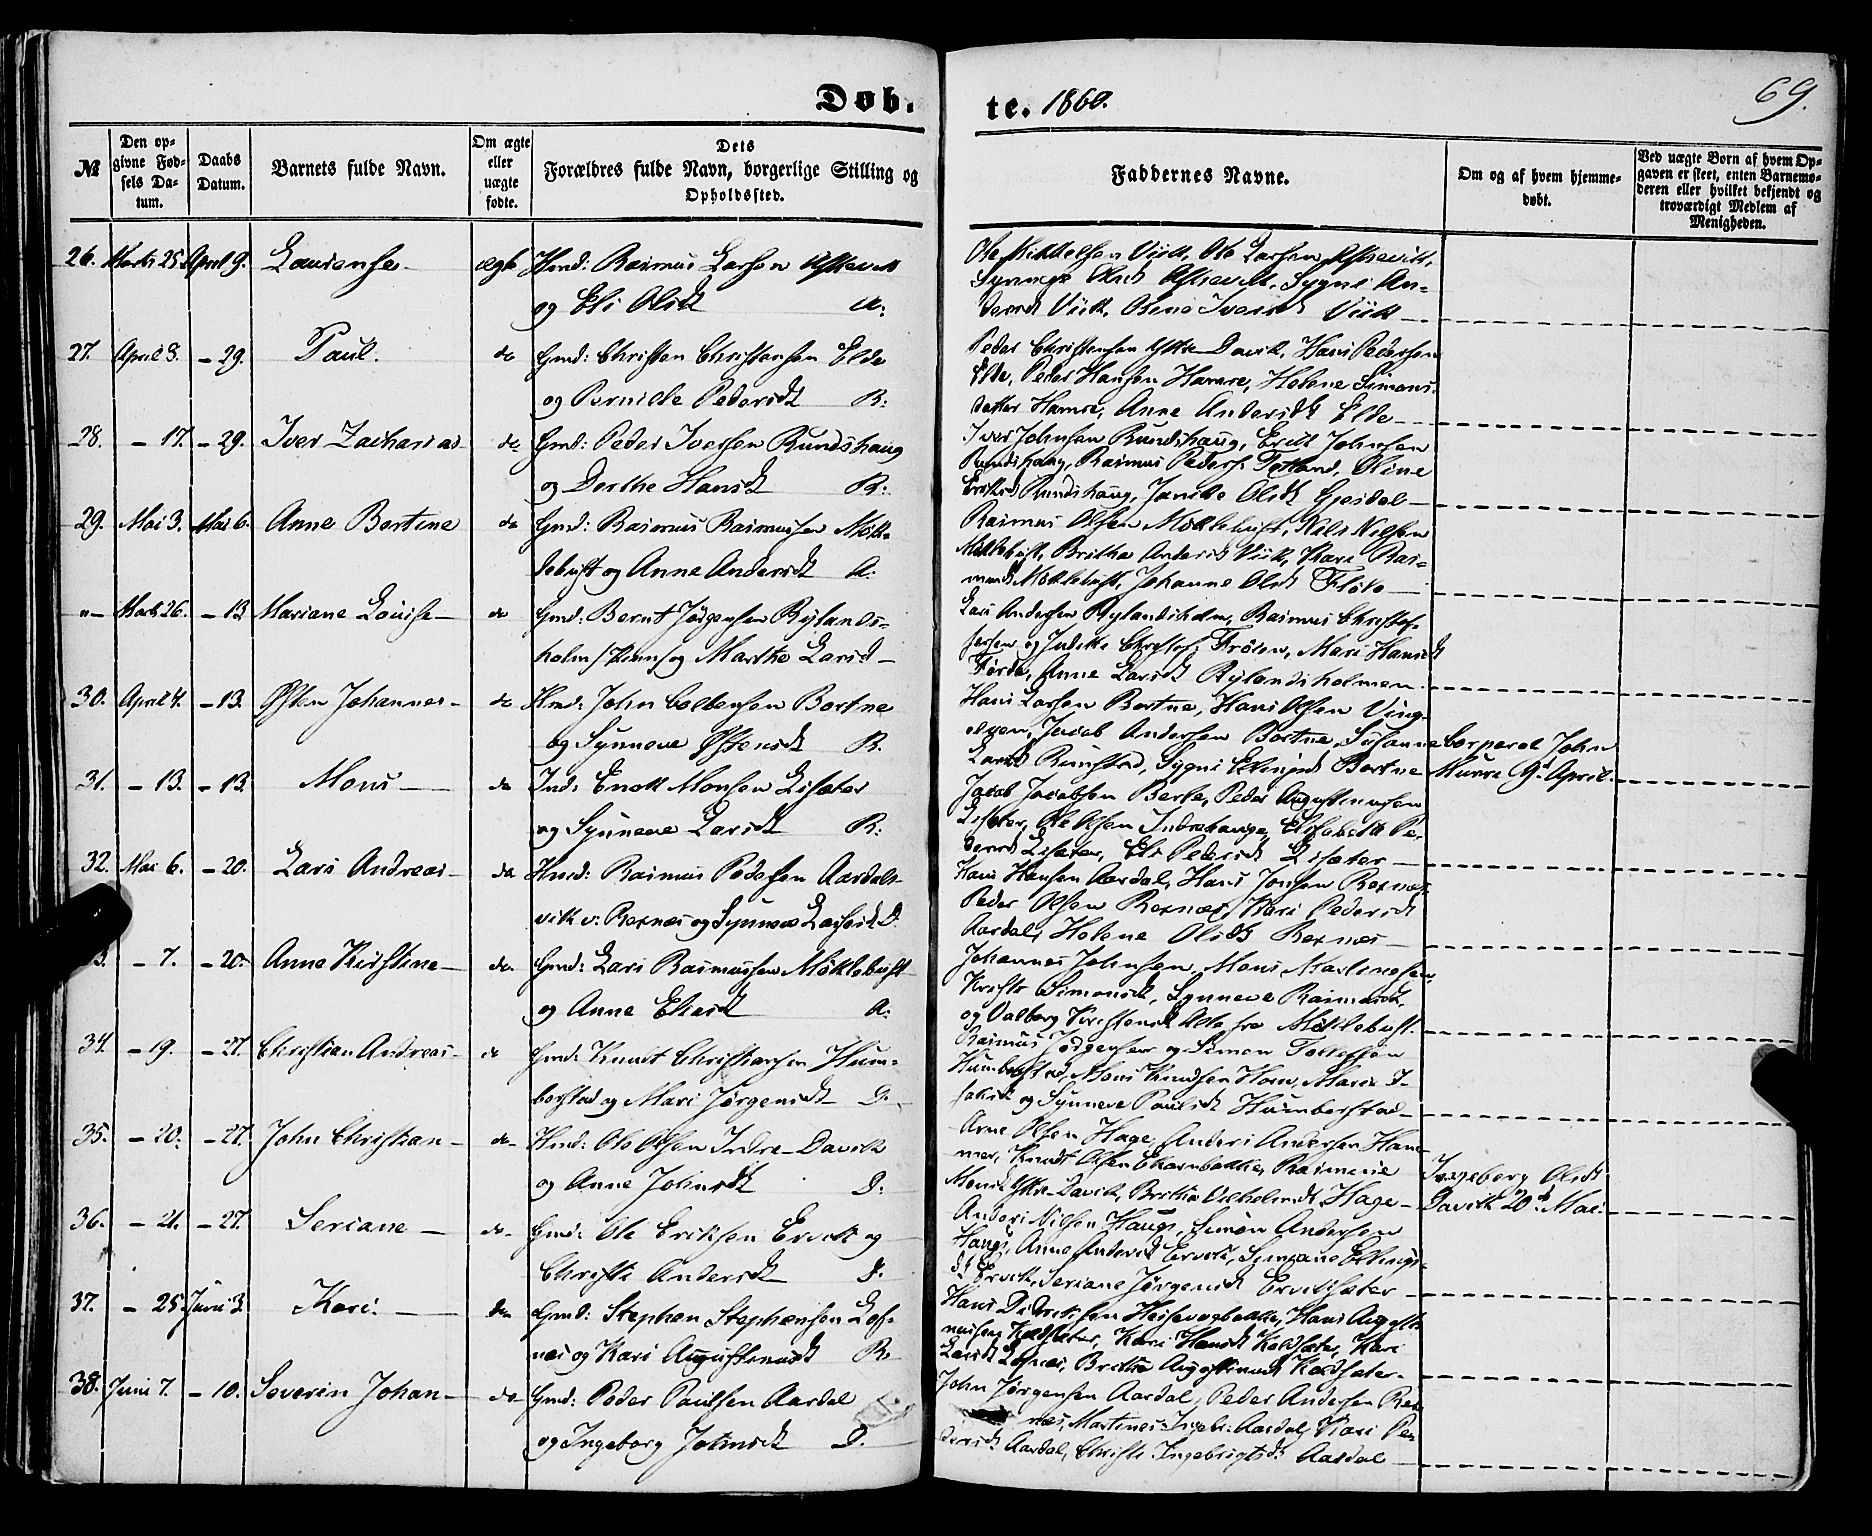 Døb.
te. 1860.
69.
№
Den op-
givne Fød-
sels Da-
tum.
Daabs
Datum.
Barnets fulde Navn.
Om ægte
eller
uægte
fødte.
Dets
Forældres fulde Navn, borgerlige Stilling og
Opholdssted.
Faddernes Navne.
Om og af hvem hjemme-
døbt.
Ved uægte Børn af hvem Op-
gaven er skeet, enten Barnemo-
deren eller hvilket bekjendt og
troværdigt Medlem af
Menigheden.
26. Marts 25. April 9. Laurense ægte Hmd: Rasmus Larsen
og Eli Olsdt A:
Ole Mikkelsen Viik, Ole Larsen
Sygni An-
dersdt Viik, Oline Iversdt Viik
27. April 3. – 29. Paul. do Gmd: Christen Christensen Elde
og Pernille Pedersdt R:
Peder Christensen Ytre Davik, Hans Pedersen
Elde, Peder Hansen Hamre, Helene Simons-
datter Hamre, Anne Andersdt Elde
28. – 17. – 29. Iver Zacharias do Gmd: Peder Iversen Rundshaug
og Dorthe Hansdt R:
Iver Johnsen Rundshaug, Erik Johnsen
Rundshaug, Rasmus Peders: Oline
Eriksd Rundshaug, Janike Olsdt Gjesdal
29. Mai 3. Mai 6. Anne Bertine do Gmd: Rasmus Rasmussen Møk-
lebust og Anne Andersdt A:
Rasmus Olsen Møklebust, Nils Nilsen
Møklebust, Brithe Andersdt Viik, Kari Ras-
musdt Møklebust, Johanne Olsdt
"– Marts 26. – 13. Mariane Louise do Gmd: Bernt Jørgensen Rylands-
holm og Marthe Larsd
Lars Andersen Rylandsholm, Rasmus Christof-
fersen og Christof: Frøien, Mari Hansdt
Førde, Anne Larsdt Rylandsholmen
30. April 4. – 13. Østen Johannes do Hmd: John Colbensen Bortne
og Synneve Østensdt R.
Hans Larsen Bortne, Hans Olsen Ving-
elven, Jacob Andersen Bortne, Susanne
Larsdt Sygni Bortne
Corporal John
9. April.
31. – 13. – 13. Mons do Ind: Enok Monsen Lisæter
og Synneve Larsdt R:
Jacob Jacobsen Berle, Peder Augustinusen
Lisæter, Ole Olsen Indrehauge, Elisabeth Pe-
dersdt Lisæter, Eli Pedersdt Lisæter
32. Mai 6. – 20. Lars Andreas do Hmd: Rasmus Pedersen Aardals-
vik v: Rexnæs og Synneve D.
Hans Hansen Aardal, Hans Jonsen Rexnæs
Peder Olsen Rexnæs, Kari Pedersdt
Aardal, Helene Olsdt Rexnæs
– 7. – 20. Anne Kirstine do Gmd: Lars Rasmussen Møklebust
og Anne Eliasdt A:
Johannes Johnsen, Mons Martinusen,
Simonsdt, Synneve Rasmusdt,
og Valborg Christensdt Alle fra Møklebust.
34. – 19. – 27. Christian Andreas do Gmd: Knudt Christiansen Hum-
borstad og Mari Jørgensdt D.
Rasmus Jørgensen og Simon Tollefsen
Humborstad, Mons Knudsen Hom, Mari I-
saksdt og Synneve Paulsdt Humborstad
35. – 20. – 27. John Christian do Hmd: Ole Olsen Indre-Davik
og Anne Johnsdt D:
Arne Olsen Hage, Anders Andersen Ham-
mer, Knudt Olsen Rasmine
Monsdt Ytre-Davik, Brithe Hage
Ingeborg Olsdt
Davik 20d Mai.
36. – 21. – 27. Seriane do Gmd: Ole Eriksen Ervik og
Christi Andersdt D.
Anders Nilsen Haugs, Simon Andersen
Haugs, Anne Andersdt Ervik,
dt Ervik, Seriane Jørgensdt Erviksæter
37. – 25. Juni 3. Kari. do Gmd: Stephen Stephensen Lef-
nes og Kari Augustinusdt R.
Hans Didriksen Hans Augusti-
nusen Koldsæter, Kari Hansdt Koldsæter, Kari
Larsdt Brithe Augustinusdt Koldsæter
38. Juni 7. – 10. Severin Johan do Gmd: Peder Paulsen Aardal
og Ingeborg Johnsdt D.
John Jørgensen Aardal, Peder Andersen Rex-
næs, Martines Ingebr: Aardal, Kari Pe-
dersdt Aardal, Christi Ingebrigtsdt Aardal